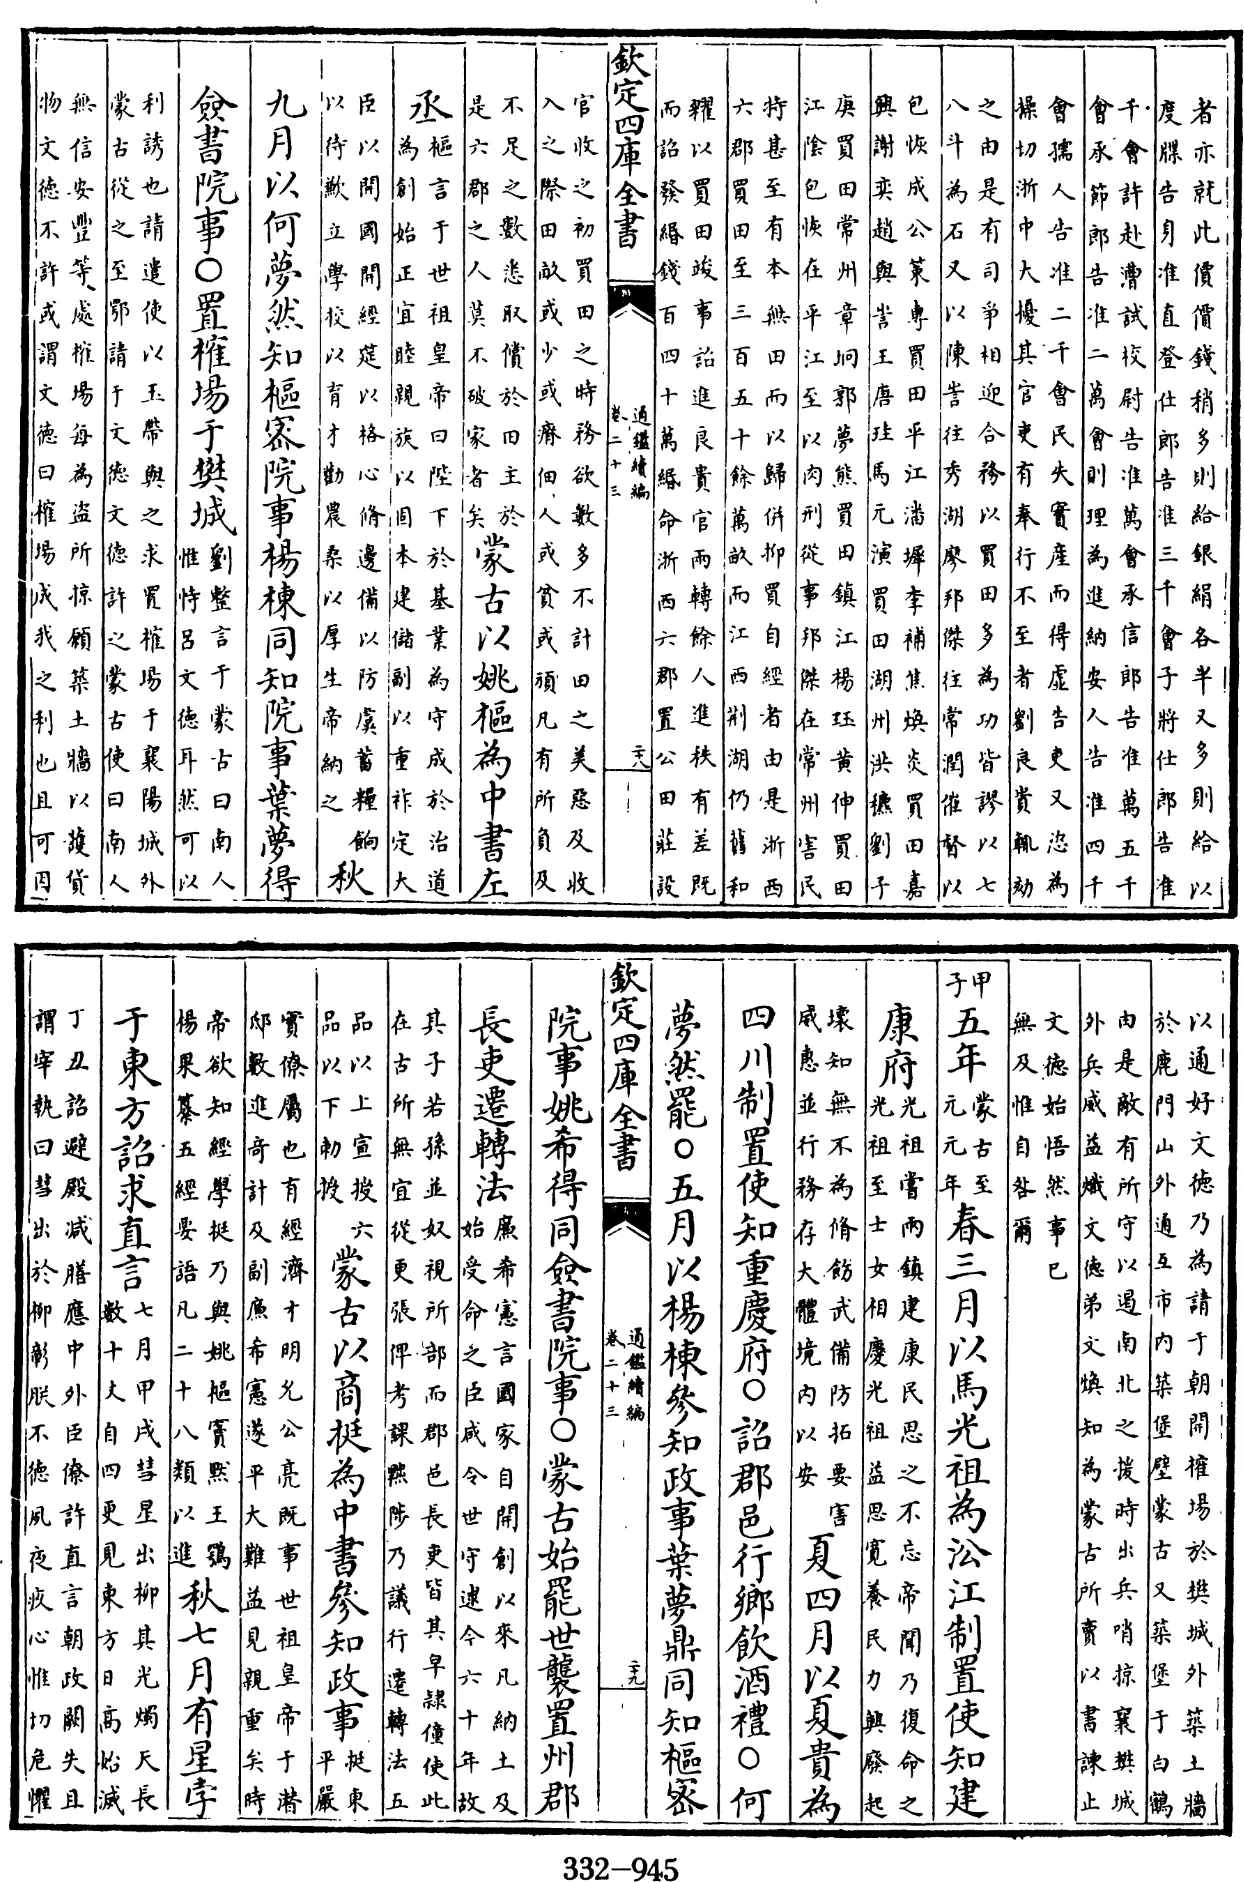 者亦就此價價錢稍多則給銀絹各半又多則給以
度牒告身准直登仕郎告准三千會子將仕郎告准
千會許赴漕試校尉告准萬會承信郎告准萬五千
會承節郎告准二萬會則理為進納安人告准四千
會孺人告准二千會民失實產而得虛告吏又恣為
操切浙中大擾其官吏有奉行不至者劉良貴輒劾
之由是有司爭相迎合務以買田多為功皆謬以七
八斗為石又以陳訔往秀湖廖邦傑往常潤催督以
包恢成公策專買田平江潘墀李補焦煥炎買田嘉
興謝奕趙與訔王唐珪馬元演買田湖州洪穮劉子
庚買田常州章坰郭夢熊買田鎮江楊珏黃伸買田
江陰包恢在平江至以肉刑從事邦傑在常州害民
特甚至有本無田而以歸併抑買自經者由是浙西
六郡買田至三百五十餘萬畝而江西荊湖仍舊和
糴以買田竣事詔進良貴官兩轉餘人進秩有差既
而詔發緡錢百四十萬緡命浙西六郡置公田莊設
欽定四庫全書
通鑑續編
卷二十三
二十八
官收之初買田之時務欲數多不計田之美惡及收
入之際田畝或少或瘠佃人或貧或頑凡有所負及
不足之數悉取償於田主於
是六郡之人莫不破家者矣
蒙古以姚樞為中書左
丞
樞言于世祖皇帝曰陛下於基業為守成於治道
為創始正宜睦親族以固本建儲副以重祚定大
臣以開國開經筵以格心脩邊備以防虞蓄糧餉
以待歉立學校以育才勸農桑以厚生帝納之
秋
九月以何夢然知樞密院事楊棟同知院事葉夢得
僉書院事○置榷場于樊城
劉整言于蒙古曰南人
惟恃呂文德耳然可以
利誘也請遣使以玉帶與之求置榷場于襄陽城外
蒙古從之至鄂請于文德文德許之蒙古使曰南人
無信安豐等處榷場每為盜所惊願築土牆以護貨
物文德不許或謂文德曰榷場成我之利也且可因
以通好文德乃為請于朝開榷場於樊城外築土牆
於鹿門山外通互市內築堡壁蒙古又築堡于白鶴
由是敵有所守以遏南北之援時出兵哨掠襄樊城
外兵威益熾文德弟文煥知為蒙古所賣以書諫止
文德始悟然事已
無及惟自咎爾
甲子
五年
蒙古至
元元年
春三月以馬光祖為沿江制置使知建
康府
光祖嘗兩鎮建康民思之不忘帝聞乃復命之
光祖至士女相慶光祖益思寬養民力興廢起
壞知無不為脩飭武備防拓要害
威惠並行務存大體境內以安
夏四月以夏貴為
四川制置使知重慶府○詔郡邑行鄉飲酒禮○何
夢然罷○五月以楊棟參知政事葉夢鼎同知樞密
欽定四庫全書
通鑑續編
卷二十三
二十九
院事姚希得同僉書院事○蒙古始罷世襲置州郡
長吏遷轉法
廉希憲言國家自開創以來凡納土及
始受命之臣咸令世守逮今六十年故
其子若孫並奴視所部而郡邑長吏皆其皁隸僮使此
在古所無宜從更張俾考課黜陟乃議行遷轉法五
品以上宣授六
品以下勅授
蒙古以商挺為中書參知政事
挺東
平嚴
實僚屬也有經濟才明允公亮既事世祖皇帝于潛
邸數進奇計及副廉希憲遂平大難益見親重矣時
帝欲知經學挺乃與姚樞竇默王鶚
楊果纂五經要語凡二十八類以進
秋七月有星孛
于東方詔求直言
七月甲戌彗星出柳其光燭天長
數十丈自四更見東方日高始滅
丁丑詔避殿減膳應中外臣僚許直言朝政闕失且
謂宰執曰彗出於柳彰朕不德夙夜疚心惟切危懼
332-945